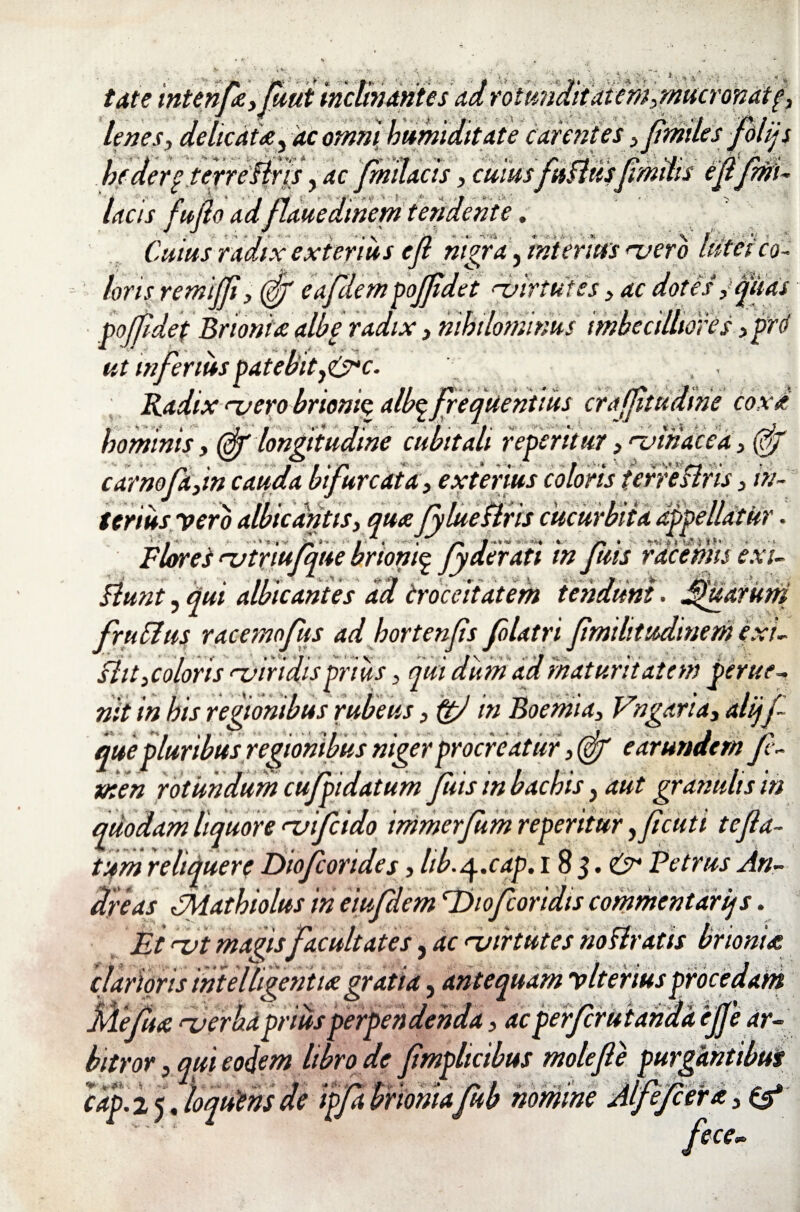 tate intensæ, ſuut inclinantes ad rotunditatem, mucronatę,
lenes, delicatæ, ac omni humiditate carentes, ſimiles folijs
hederę terrestris, ac ſmilacis, cuius fustus ſimilis eſt ſmi-
lacis fuſto ad flauedinem tendente.
Cuius radix exterius eſt nigra, interius vero lutei co-
loris remiſſi, & eaſdem poſſidet virtutes, ac dotes, quas
poſſidet Brioniæ albę radix, nihilominus imbecilliores, pro
ut inferius patebit, &c.
Radix vero brionię albę frequentius craſſitudine coxæ
hominis, & longitudine cubitali reperitur, vinacea, &
carnoſa, in cauda bifurcata, exterius coloris terrestris, in-
terius vero albicantis, quæ ſyluestris cucurbita appellatur.
Flores vtriuſque brionię ſyderati in ſuis racemis exi-
stunt, qui albicantes ad croceitatem tendunt. Quarum
fructus racemoſus ad hortenſis ſolatri ſimilitudinem exi-
stit, coloris viridis prius, qui dum ad maturitatem perue-
nit in his regionibus rubeus, & in Boemia, Vngaria, alijſ-
que pluribus regionibus niger procreatur, & earundem ſe-
men rotundum cuſpidatum ſuis in bachis, aut granulis in
quodam liquore viſcido immerſum reperitur, ſicuti teſta-
tum reliquere Dioſcorides, lib. 4. cap. 183. & Petrus An-
dreas Mathiolus in eiuſdem Dioſcoridis commentarijs.
Et vt magis facultates, ac virtutes nostratis brioniæ
clarioris intelligentiæ gratia, antequam vlterius procedam
Meſuæ verba prius perpendenda, ac perſcrutanda eſſe ar-
bitror, qui eodem libro de ſimplicibus moleſte purgantibus
cap. 25. loquens de ipſa brionia ſub nomine Alfeſceræ, &
fece-